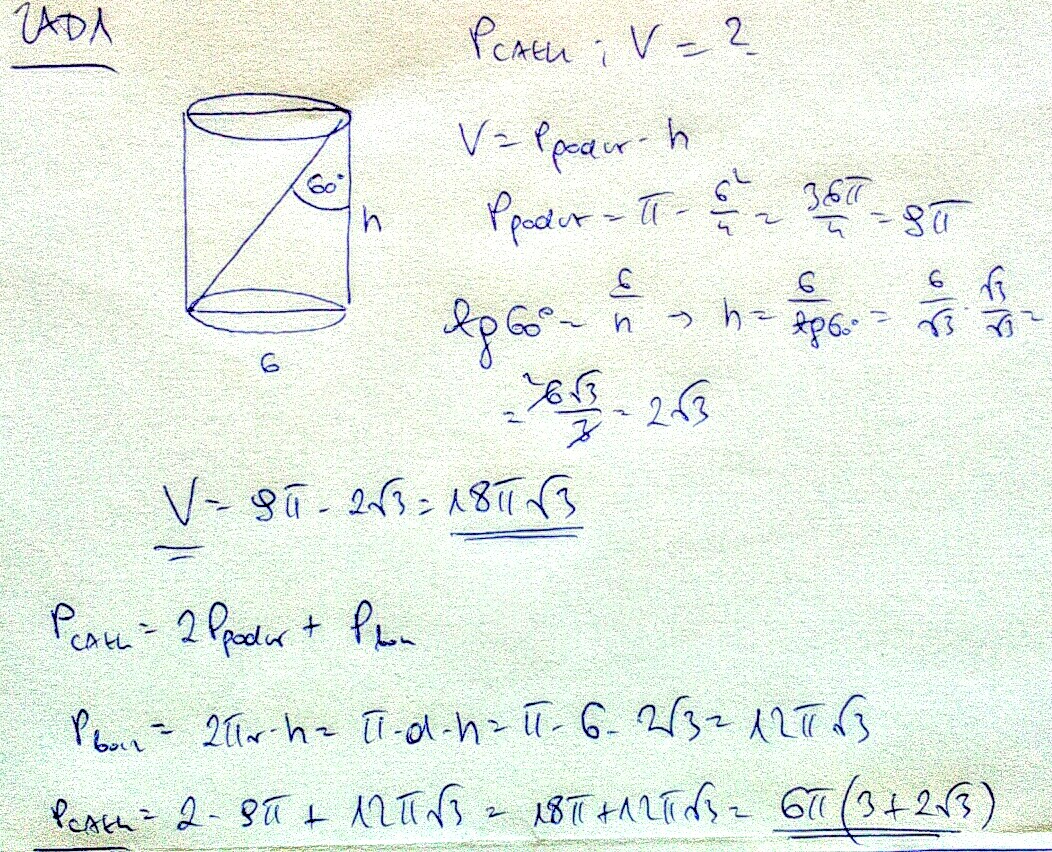 ZAD1
PCAŁK ; V = ?
60°
h
6
V = Ppodst · h
Ppodst = π · 6²/4 = 36π/4 = 9π
tg 60° = 6/h → h = 6/tg60° = 6/√3 · √3/√3 =
= ²6√3/3 = 2√3
V = 9π · 2√3 = 18π√3
PCAŁK = 2Ppodst + Pbocz
Pbocz = 2πr·h = π·d·h = π · 6 · 2√3 = 12π√3
PCAŁK = 2 · 9π + 12π√3 = 18π + 12π√3 = 6π(3+2√3)